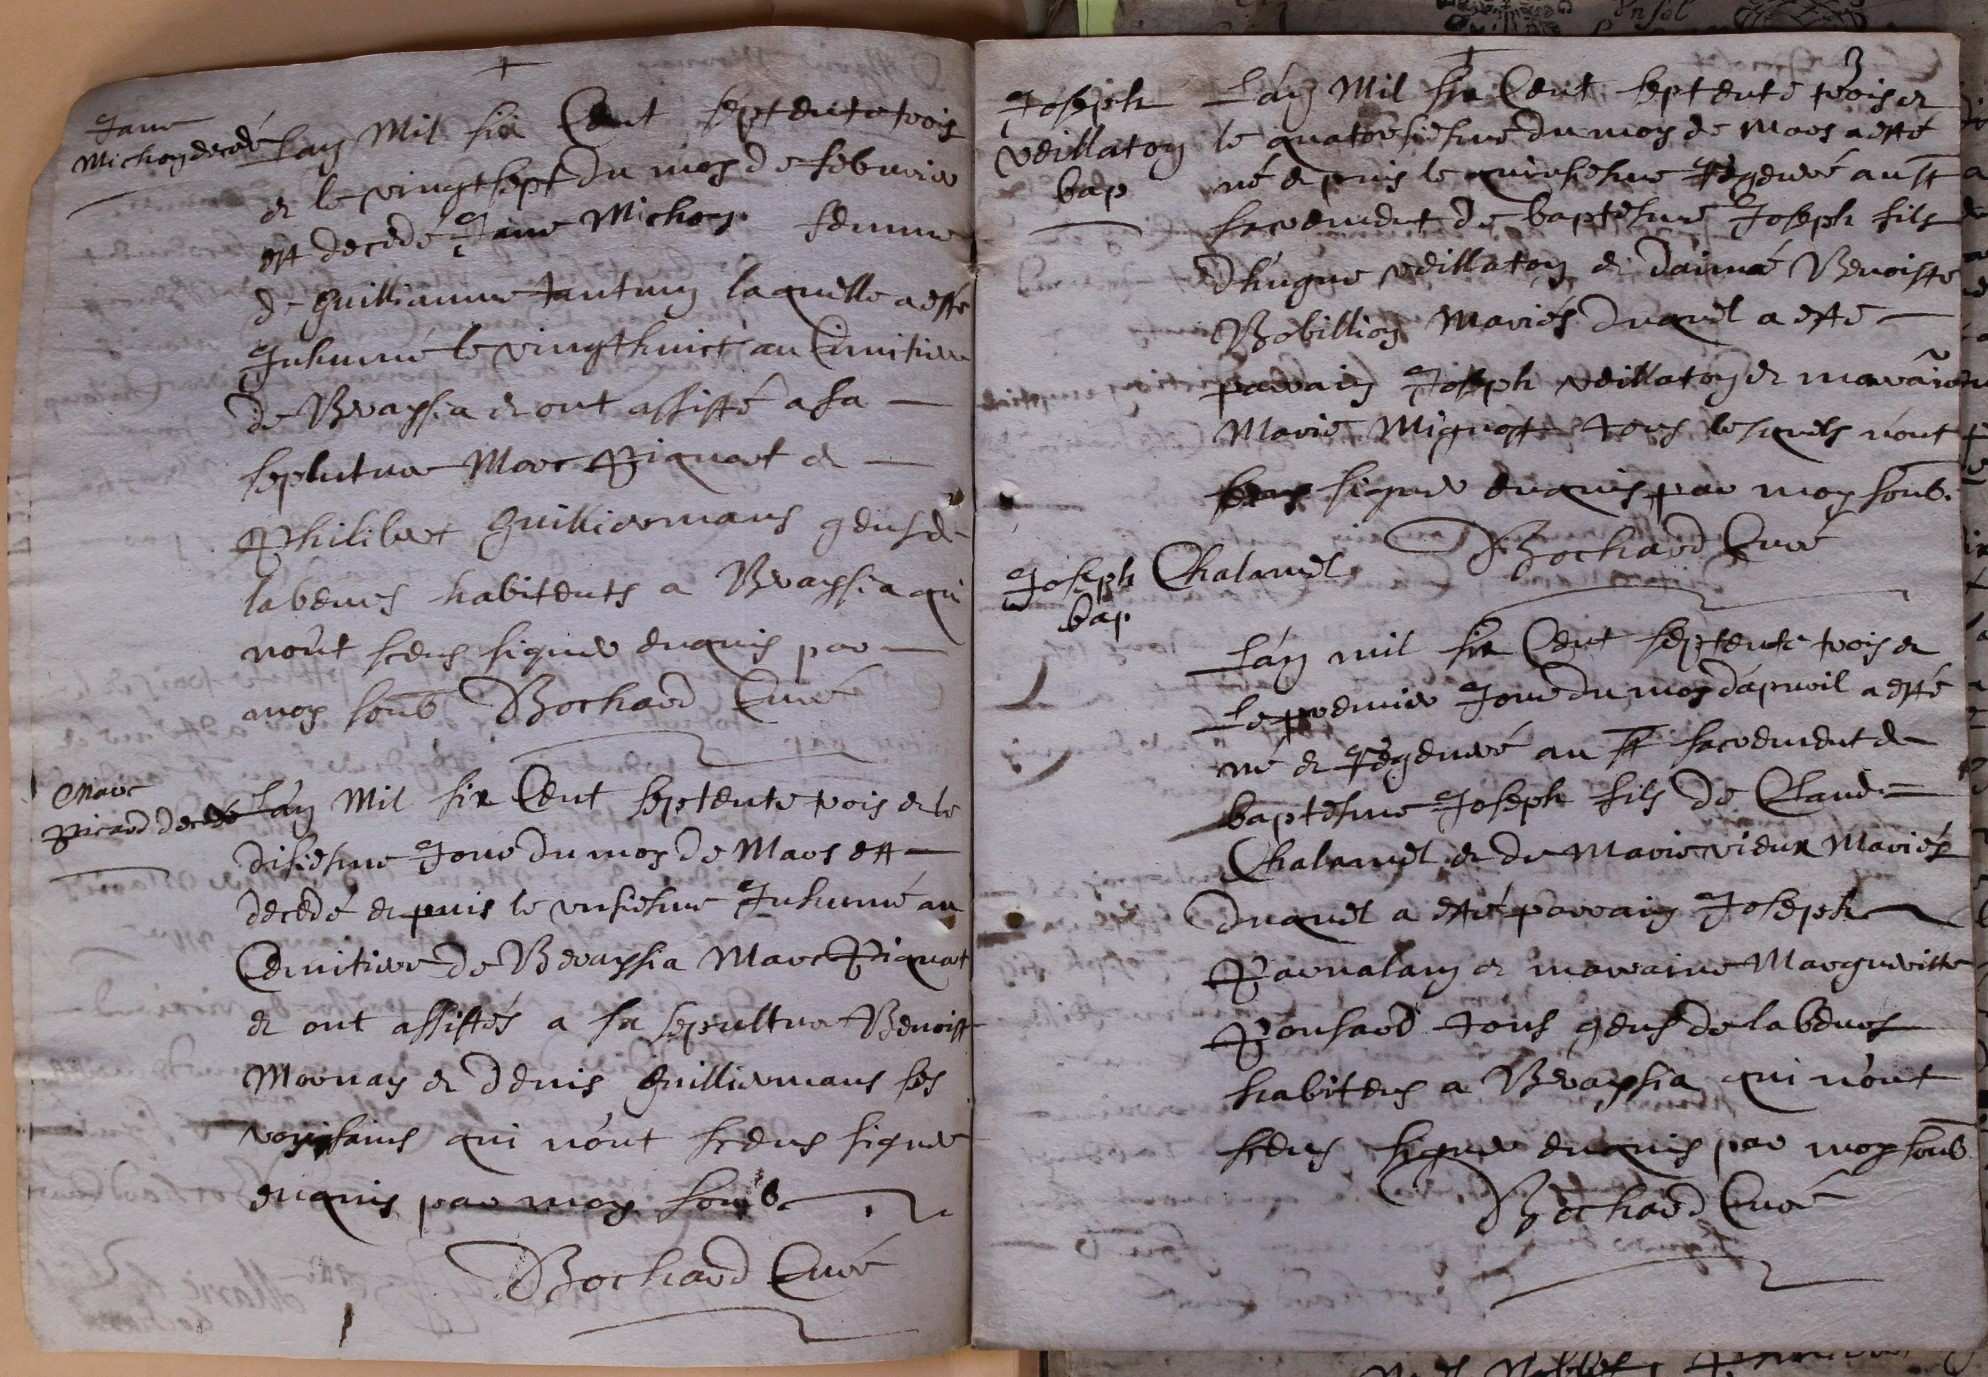 Jane
Michon decedé
Lan Mil six Cent septente trois
et le vingtsept du mois de febvrier
est decedé Jane Michon femme
de guillaume Jantuy laquelle a esté
Inhumé le vingthuict au Cimitiere
de Bereyssia et ont assisté a sa
sepluture Marc Piquart et
Philibert guilliermans gens de
labeurs habitents a Bereyssia qui
nont sceus signer enquis par
moy soub Bochard Curé
Marc
Picard decedé
Lan Mil six Cent septente trois et le
disiesme Jour du mois de Mars est
decedé et puis le unsiesme Inhumé au
Cemitiere de Bereyssia Marc Piquart
et ont assistés a sa sepultur Benoist
Mornay et denis guilliermans ses
voysains qui nont sceus signer
enquis par moy soub
Bochard Curé
3
Joseph
veillaton
bap
Lan Mil six Cent septente trois et
le quatorsiesme du moy de Mars a esté
né et puis le quinsiesme Regeneré au st
sacrement de baptesme Joseph fils
dhugue veillaton et daimée Benoiste
Bobillion Mariés duquel a esté
parrain Joseph veillaton et marraine
Marie Mignost tous lesquels nont
sceus signer enquis par moy soub.
Bochard Curé
Joseph Chalamel
bap
Lan mil six Cent septente trois et
Le premier Jour du mois dapvril a esté
né et Regeneré au st sacrement de
baptesme Joseph fils de Claude
Chalamel et de Marie vieux Mariés
duquel a esté parrain Joseph
Parnalan et marraine Margueritte
Ponsard tous gens de labeurs
habitens a Bereyssia qui nont
sceus signer enquis par moy soub
Bochard Curé